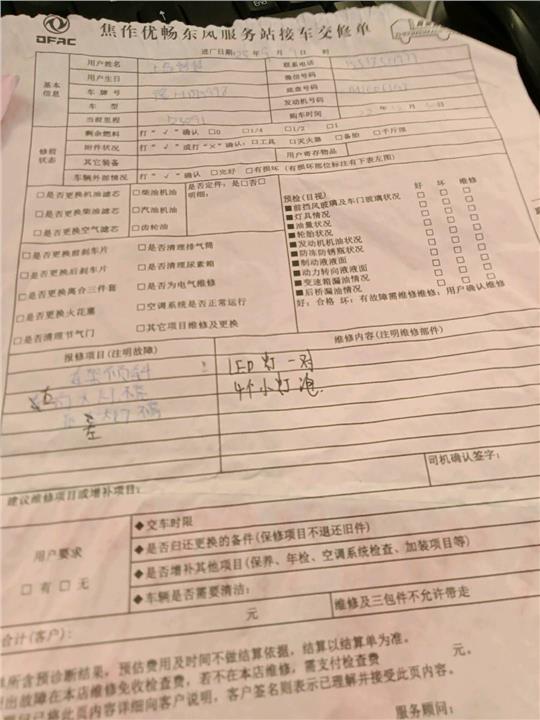 DFAC
焦作优畅东风服务站接车交修单
进厂日期: 年 月 日 时
基本信息
用户姓名
联系电话
用户生日
微信号码
车牌号
底盘号码
车 型
发动机号码
当前里程
购车时间
修前状态
剩余燃料 打“✓”确认 □0 □1/4 □1/2 □1
附件状况 打“✓”或打“×”确认: □工具 □灭火器 □备胎 □千斤顶
其它装备
用户寄存物品
车辆外部情况 打“✓”确认 □完好 □有损坏(有损坏部位标注有下表左图)
□是否更换机油滤芯 □柴油机油 是否定件: 是□否□
明细:
□是否更换柴油滤芯 □汽油机油
□是否更换空气滤芯 □齿轮油
□是否更换前刹车片 □是否清理排气筒
□是否更换后刹车片 □是否清理尿素箱
□是否更换离合三件套 □是否为电气维修
□是否更换火花塞 □空调系统是否正常运行
□是否清理节气门 □其它项目维修及更换
预检(目视) 好 坏 维修
■前挡风玻璃及车门玻璃状况 □ □ □
■灯具情况 □ □ □
■油量状况 □ □ □
■轮胎状况 □ □ □
■发动机机油状况 □ □ □
■防冻防锈瓶状况 □ □ □
■制动液液面 □ □ □
■动力转向液液面 □ □ □
■变速箱漏油情况 □ □ □
■后桥漏油情况 □ □ □
好: 合格 坏: 有故障需维修维修: 用户确认维修
报修项目(注明故障)
维修内容(注明维修部件)
LED 灯 一对
4个小灯泡
司机确认签字:
建议维修项目或增补项目:
用户要求
□有 □无
◆交车时限
◆是否归还更换的备件(保修项目不退还旧件)
◆是否增补其他项目(保养、年检、空调系统检查、加装项目等)
◆车辆是否需要清洁:
元
维修及三包件不允许带走
合计(客户):
所含预诊断结果, 预估费用及时间不做结算依据, 结算以结算单为准。
出故障在本店维修免收检查费, 若不在本店维修, 需支付检查费 元。
已将此页内容详细向客户说明, 客户签名则表示已理解并接受此页内容。
服务顾问: